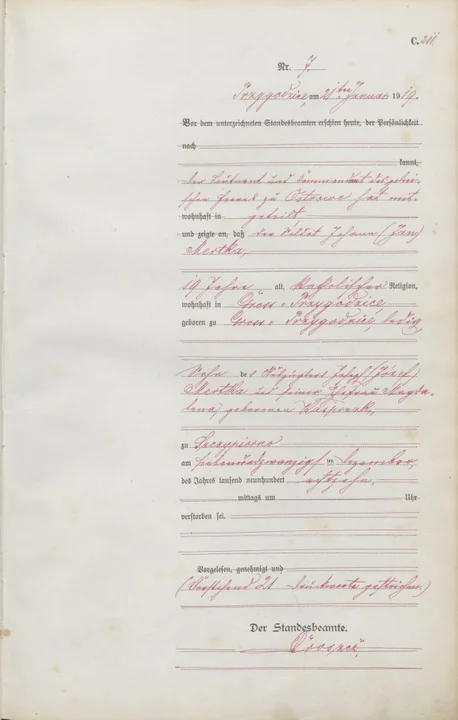 C.
Nr. 7.
Przygodzice, am 21ten Januar 1919.
Vor dem unterzeichneten Standesbeamten erschien heute, der Persönlichkeit
nach
kannt,
Der Leutnant und Kommandant des
zu Ostrowo hat mit-
wohnhaft in geteilt,
und zeigte an, daß der Soldat Johann (Jan)
Mertka,
19 Jahre alt, katholischer Religion,
wohnhaft in Gross-Przygodzice,
geboren zu Gross-Przygodzice, ledig,
Sohn des Joseph (Józef)
Mertka und seiner Ehefrau Magda-
lena, geborenen
zu Szczypiorno
am siebenundzwanzigsten Dezember,
des Jahres tausend neunhundert achtzehn,
mittags um Uhr
verstorben sei.
Vorgelesen, genehmigt und
(Vorstehend 21 Druckworte gestrichen.)
Der Standesbeamte.